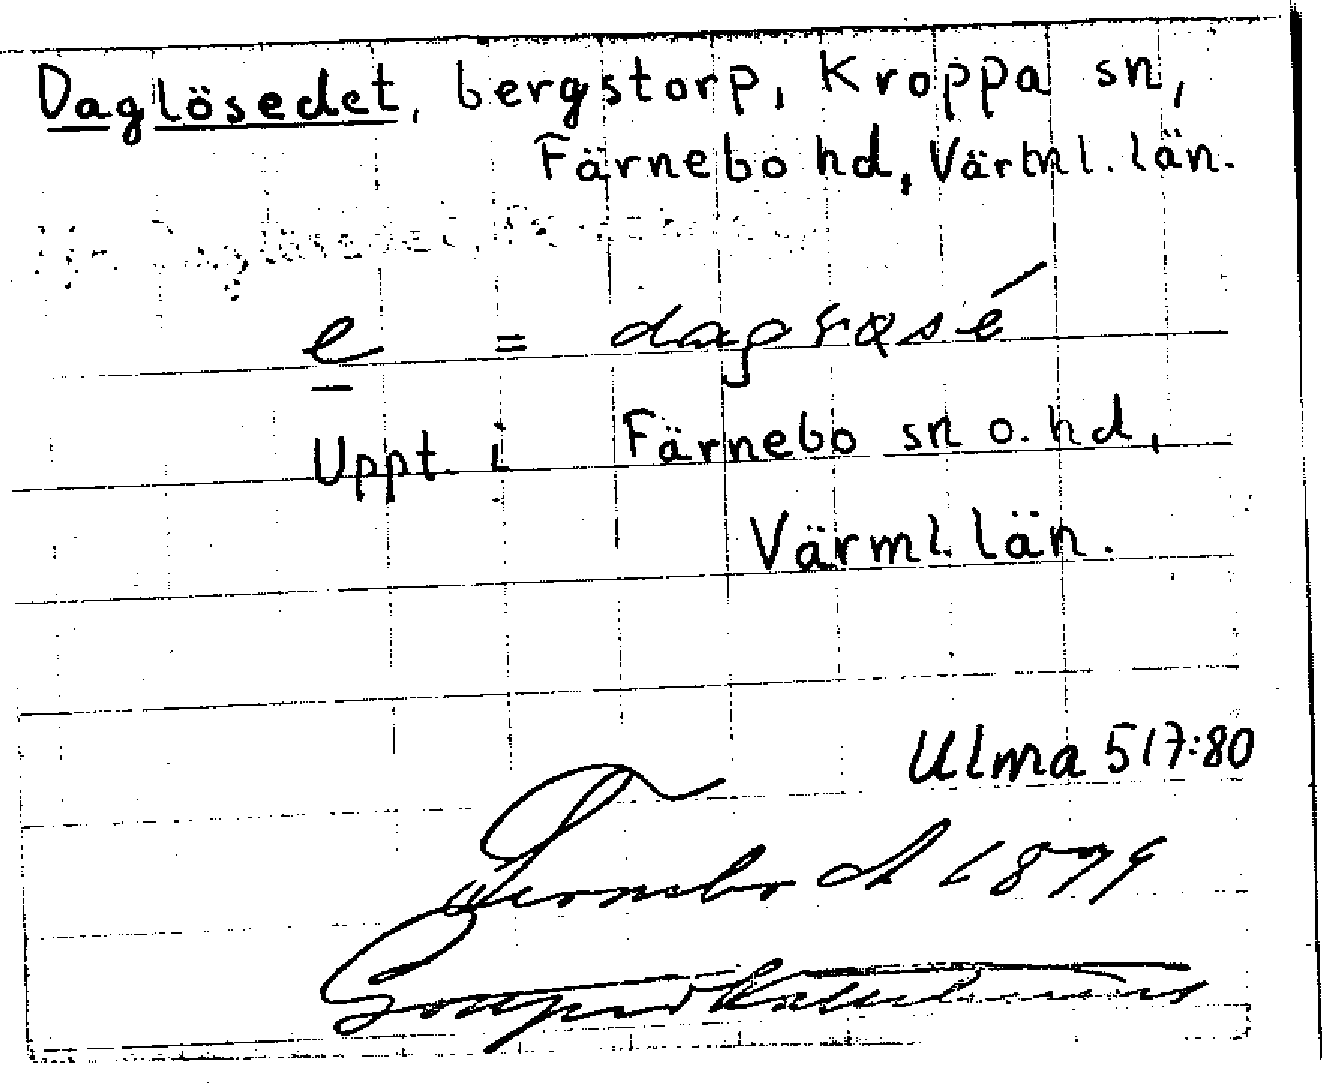 Daglösedet, bergstorp, Kroppa sn,
Färnebo hd, Värml. län.
Daglösedet,
e =
Uppt. i Färnebo sn o. hd,
Värml. län.
Ulma 517:80
Fernebo d 1879
Gottfrid Kallstenius